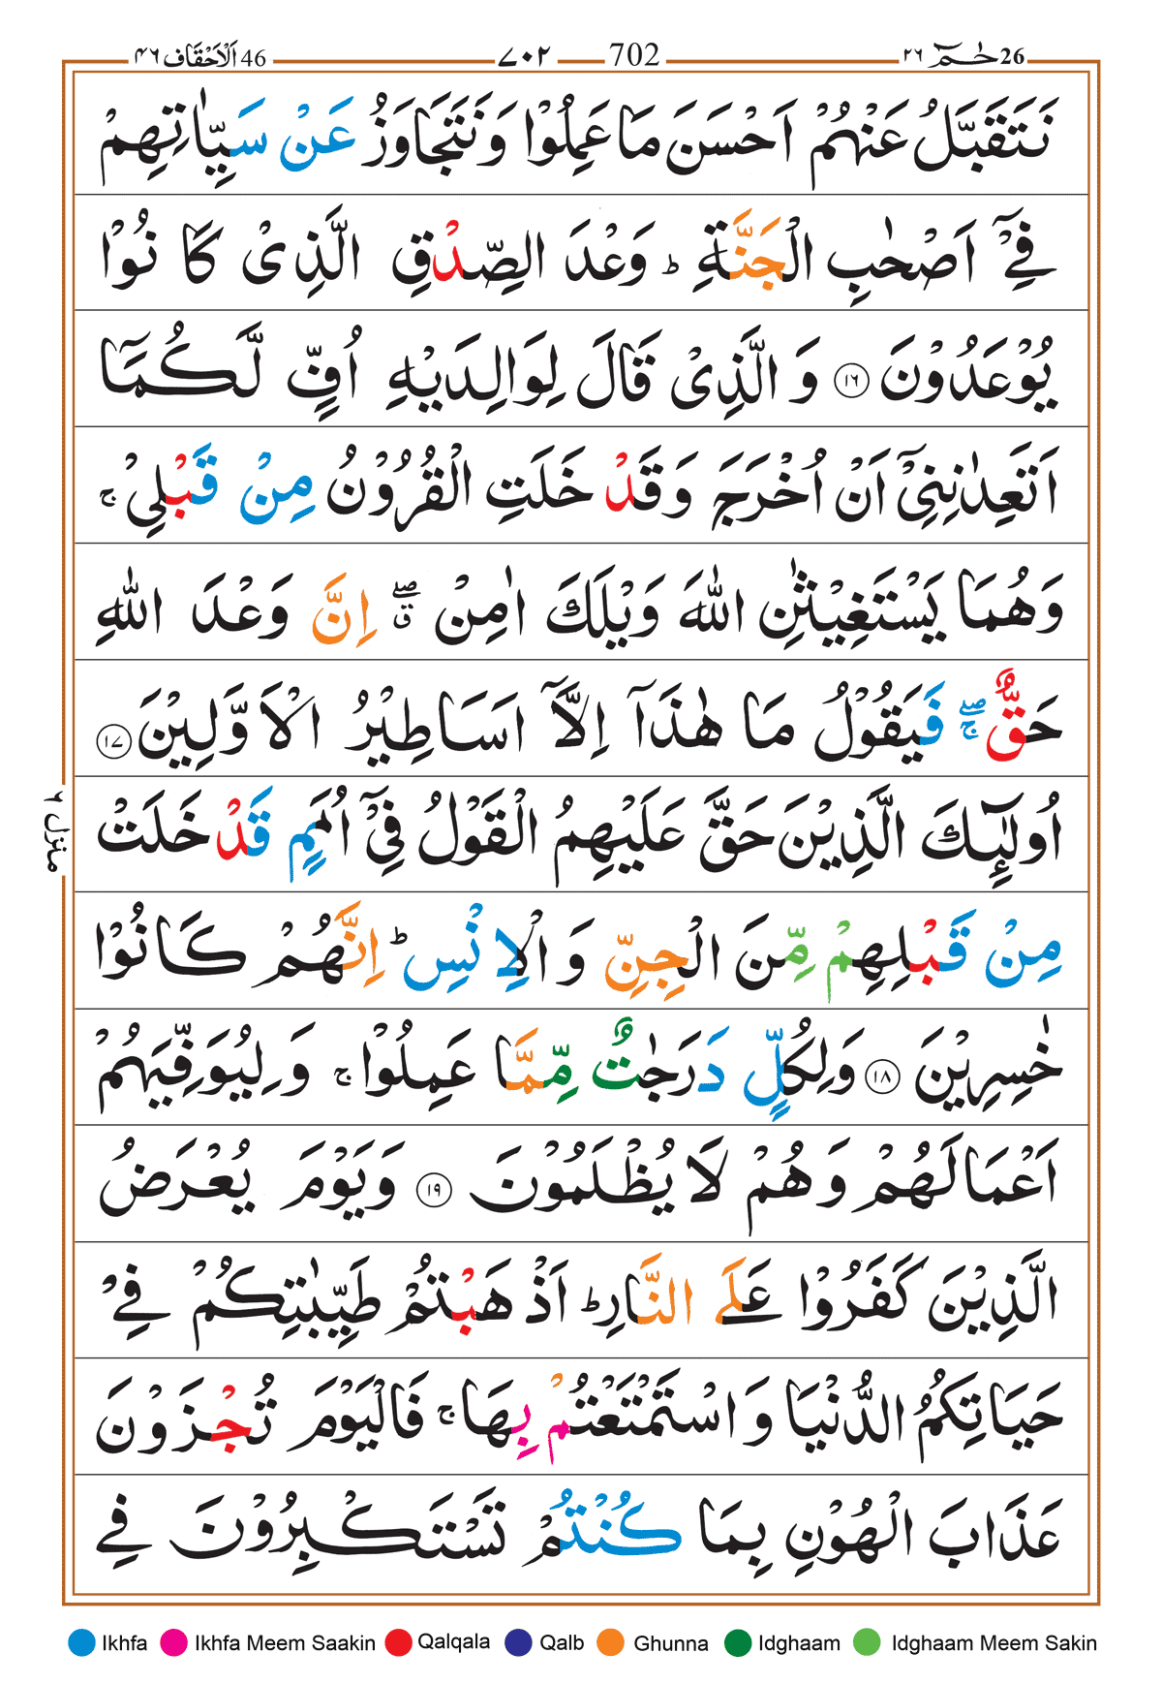 26 حٰـمٓ ٢٦ 702 ٧٠٢ 46 اَلْاَحْقَاف ٤٦
نَتَقَبَّلُ عَنْهُمْ اَحْسَنَ مَا عَمِلُوْا وَنَتَجَاوَزُ عَنْ سَيِّاٰتِهِمْ
فِىْٓ اَصْحٰبِ الْجَنَّةِ ؕ وَعْدَ الصِّدْقِ الَّذِىْ كَا نُوْا
يُوْعَدُوْنَ ۱۶ وَ الَّذِىْ قَالَ لِوَالِدَيْهِ اُفٍّ لَّكُمَاۤ
اَتَعِدٰنِنِىْۤ اَنْ اُخْرَجَ وَقَدْ خَلَتِ الْقُرُوْنُ مِنْ قَبْلِىْ ۚ
وَهُمَا يَسْتَغِيْثٰنِ اللّٰهَ وَيْلَكَ اٰمِنْ ۖ ق اِنَّ وَعْدَ اللّٰهِ
حَقٌّ ۖۚ فَيَقُوْلُ مَا هٰذَاۤ اِلَّاۤ اَسَاطِيْرُ الْاَ وَّلِيْنَ ۱۷
اُولٰٓٮِٕكَ الَّذِيْنَ حَقَّ عَلَيْهِمُ الْقَوْلُ فِىْۤ اُمَمٍ قَدْ خَلَتْ
مِنْ قَبْلِهِمْ مِّنَ الْجِنِّ وَ الْاِنْسِ ؕ اِنَّهُمْ كَانُوْا
خٰسِرِيْنَ ۱۸ وَلِكُلٍّ دَرَجٰتٌ مِّمَّا عَمِلُوْا ۚ وَ لِيُوَفِّيَهُمْ
اَعْمَالَهُمْ وَهُمْ لَا يُظْلَمُوْنَ ۱۹ وَيَوْمَ يُعْرَضُ
الَّذِيْنَ كَفَرُوْا عَلَى النَّارِ ؕ اَذْ هَبْتُمْ طَيِّبٰتِكُمْ فِىْ
حَيَاتِكُمُ الدُّنْيَا وَ اسْتَمْتَعْتُمْ بِهَا ۚ فَالْيَوْمَ تُجْزَوْنَ
عَذَابَ الْهُوْنِ بِمَا كُنْتُمْ تَسْتَكْبِرُوْنَ فِى
منزل ٦
Ikhfa Ikhfa Meem Saakin Qalqala Qalb Ghunna Idghaam Idghaam Meem Sakin